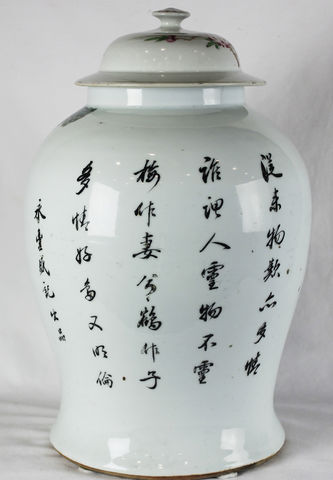 從來物類亦多情
誰謂人靈物不靈
梅作妻兮鶴作子
多情好鳥又明倫
永豐瓷記出品